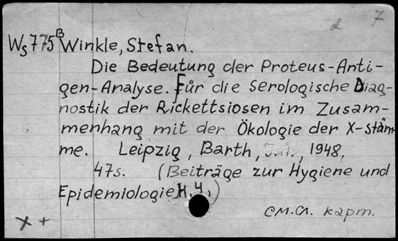 7
Ws775B Winkle, Stefan.
Die Bedeutung der Proteus-Anti-
gen-Analyse. Für die Serologische Diag-
nostik der Rickettsiosen im Zusam-
menhang mit der Ökologie der X-Stäm-
me. Leipzig, Barth, 1948.
47s. (Beiträge zur Hygiene und
Epidemiologie, H. 4.)
см.сл. карт.